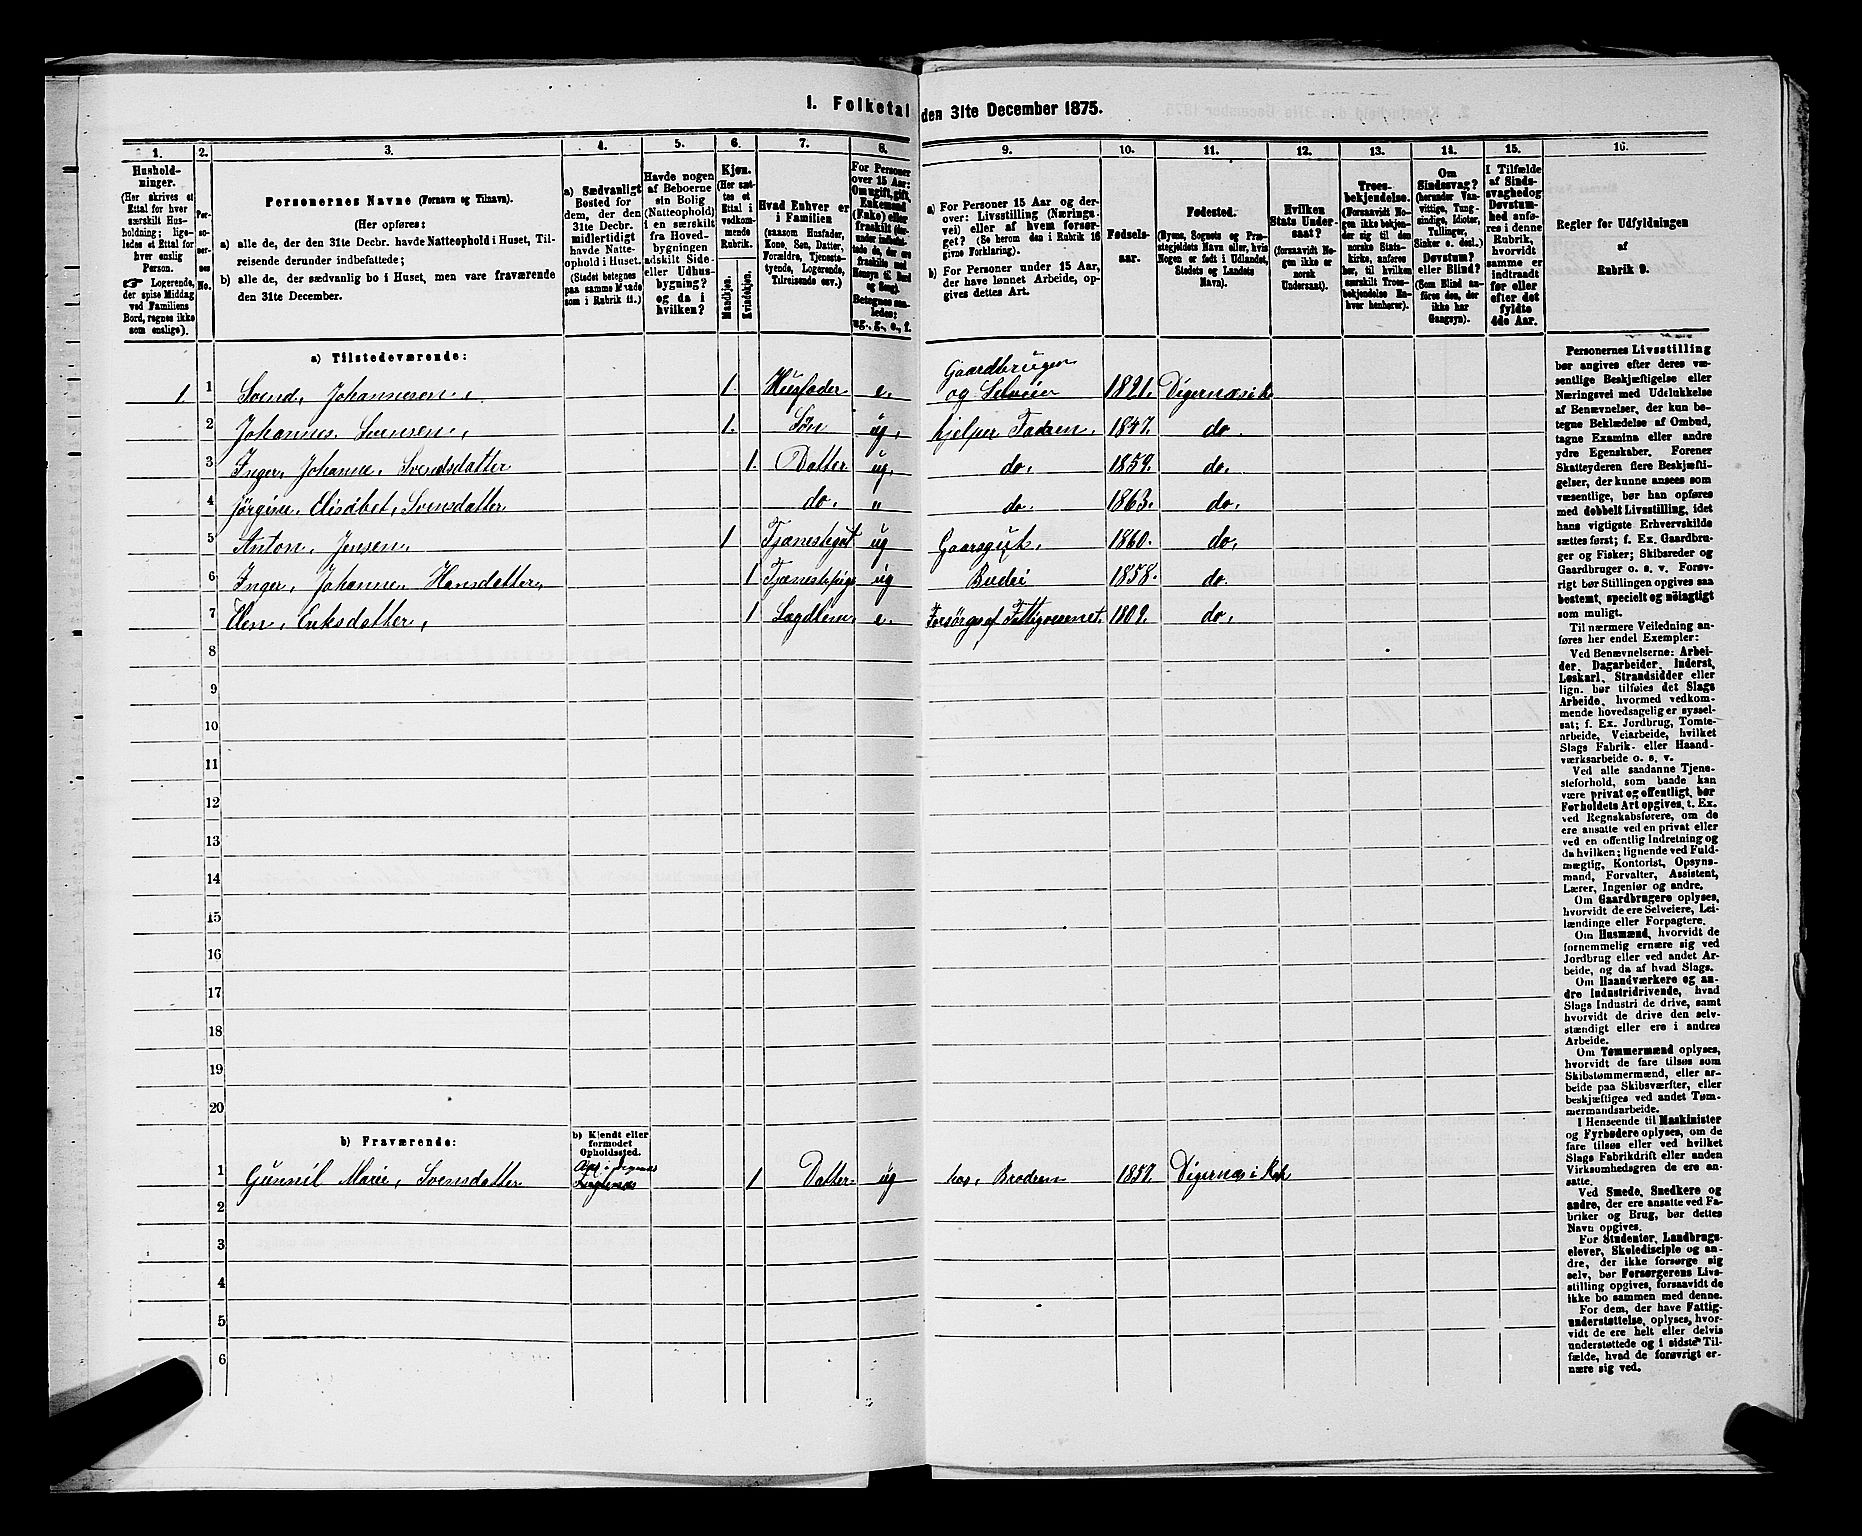 1. Folketal den 31te December 1875.
1. 2. 3. 4. 5. 6. 7. 8. 9. 10. 11. 12. 13. 14. 15. 16.
Husholdninger.
(Her skrives et
Ettal for hver
særskilt Husholdning; ligeledes et Ettal for
hver enslig
Person.
☛ Logerende,
der spise Middag
ved Familiens
Bord, regnes ikke
som enslige).
Personernes No.
Personernes Navne (Fornavn og Tilnavn).
(Her opføres:
a) alle de, der den 31te Decbr. havde Natteophold i Huset, Tilreisende derunder indbefattede;
b) alle de, der sædvanlig bo i Huset, men vare fraværende
den 31te December.
a) Sædvanligt
Bosted for
dem, der den
31te Decbr.
midlertidigt
havde Natteophold i Huset.
(Stedet betegnes
paa samme Maade
som i Rubrik 11.)
Havde nogen
af Beboerne
sin Bolig
(Natteophold)
i en særskilt
fra Hovedbygningen
adskilt Side- eller Udhusbygning?
og da i
hvilken?
Kjøn.
(Her sættes et
Ettal i
vedkommende
Rubrik.
Mandkjøn.
Kvindekjøn.
Hvad Enhver er
i Familien
(saasom Husfader,
Kone, Søn, Datter,
Forældre, Tjenestetyende, Logerende,
Tilreisende osv.)
For Personer
over 15 Aar:
Om ugift, gift,
Enkemand
(Enke) eller
fraskilt
Betegnes saaledes:
ug., g., e., f.
a) For Personer 15 Aar og derover: Livsstilling (Næringsvei) eller af hvem forsørget? (Se herom den i Rubrik 16
givne Forklaring).
b) For Personer under 15 Aar,
der have lønnet Arbeide, opgives dettes Art.
Fødselsaar.
Fødested.
(Byens, Sognets og Præstegjeldets Navn eller, hvis
Nogen er født i Udlandet,
Stedets og Landets
Navn).
Hvilken
Stats Undersaat?
(forsaavidt Nogen ikke er
norsk
Undersaat).
Troesbekjendelse.
(Forsaavidt Nogen ikke bekjender sig til den
norske Statskirke, anføres
her, til hvilken
særskilt Troesbekjendelse Enhver henhører).
Om
Sindssvag?
(herunder Vanvittige, Tungsindige, Idioter,
Tullinger,
Sinker o. desl.)
Døvstum?
eller Blind?
(Som Blind anføres den, der
ikke har
Gangsyn).
I Tilfælde
af Sindssvaghed og
Døvstumhed anføres i denne
Rubrik,
hvorvidt
samme er
indtraadt
før eller
efter det
fyldte
4de Aar.
Regler for Udfyldningen
af
Rubrik 9.
a) Tilstedeværende:
1. 1 Svend Johannesen, 1. Husfader e. Gaardbruger og Selveier 1821. Digernæs i
2 Johannes Svensen, 1. Søn ug. hjelper Faderen. 1847. do.
3 Inger Johanne Svendsdatter 1. Datter ug. do. 1859. do.
4 Jørgine Elisabet, Svensdatter do. „ do. 1863. do.
5 Anton Jensen, 1 Tjænestegut ug Gaarsgut. 1860. do.
6 Inger, Johanne Hansdatter, 1 Tjænestepige ug Budei 1858. do.
7 Elen, Eriksdatter, 1 Lægdlem e. Forsørges af Fattigvæsenet. 1802. do.
8
9
10
11
12
13
14
15
16
17
18
19
20
b) Fraværende:
b) Kjendt eller
formodet
Opholdssted.
1 Gunnil Marie, Svensdatter 1 Datter ug hos, Brodren 1857. Digernæs i
2
3
4
5
6
Personernes Livsstilling
bør angives efter deres væsentlige Beskjæftigelse eller
Næringsvei med Udelukkelse
af Benævnelser, der kun betegne Beklædelse af Ombud,
tagne Examina eller andre
ydre Egenskaber. Forener
Skatteyderen flere Beskjæftigelser, der kunne ansees som
væsentlige, bør han opføres
med dobbelt Livsstilling, idet
hans vigtigste Erhvervskilde
sættes først; f. Ex. Gaardbruger og Fisker; Skibsreder og
Gaardbruger o. s. v. Forøvrigt bør Stillingen opgives saa
bestemt, specielt og nøiagtigt
som muligt.
Til nærmere Veiledning anføres her endel Exempler:
Ved Benævnelserne: Arbeider, Dagarbeider, Inderst,
Løskarl, Strandsidder eller
lign. bør tilføies det Slags
Arbeide, hvormed vedkommende hovedsagelig er sysselsat; f. Ex. Jordbrug, Tomtearbeide, Veiarbeide, hvilket
Slags Fabrik- eller Haandværksarbeide o. s. v.
Ved alle saadanne Tjenesteforhold, som baade kan
være privat og offentligt, bør
Forholdets Art opgives, t. Ex.
ved Regnskabsførere, om de
ere ansatte ved en privat eller
ved en offentlig Indretning og
da hvilken; lignende ved Fuldmægtig, Kontorist, Opsynsmand, Forvalter, Assistent,
Lærer, Ingeniør og andre.
Om Gaardbrugere oplyses,
hvorvidt de ere Selveiere, Leilændinge eller Forpagtere.
Om Husmænd, hvorvidt de
fornemmelig ernære sig ved
Jordbrug eller ved andet Arbeide, og da af hvad Slags.
Om Haandværkere og andre Industridrivende, hvad
Slags Industri de drive, samt
hvorvidt de drive den selvstændigt eller ere i andres
Arbeide.
Om Tømmermænd oplyses,
hvorvidt de fare tilsøs som
Skibstømmermænd, eller arbeide paa Skibsværfter, eller
beskjæftiges ved andet Tømmermandsarbeide.
I Henseende til Maskinister
og Fyrbødere oplyses, om de
fare tilsøs eller ved hvilket
Slags Fabrikdrift eller anden
Virksomhedsgren de ere ansatte.
Ved Smede, Snedkere og
andre, der ere ansatte ved Fabriker og Brug, bør dettes
Navn opgives.
For Studenter, Landbrugselever, Skoledisciple og andre, der ikke forsørge sig
selv, bør Forsørgerens Livsstilling opgives, forsaavidt de
ikke bo sammen med denne.
For dem, der have Fattigunderstøttelse, oplyses, hvorvidt de ere helt eller delvis
understøttede og i sidste Tilfælde, hvad de forøvrigt ernære sig ved.